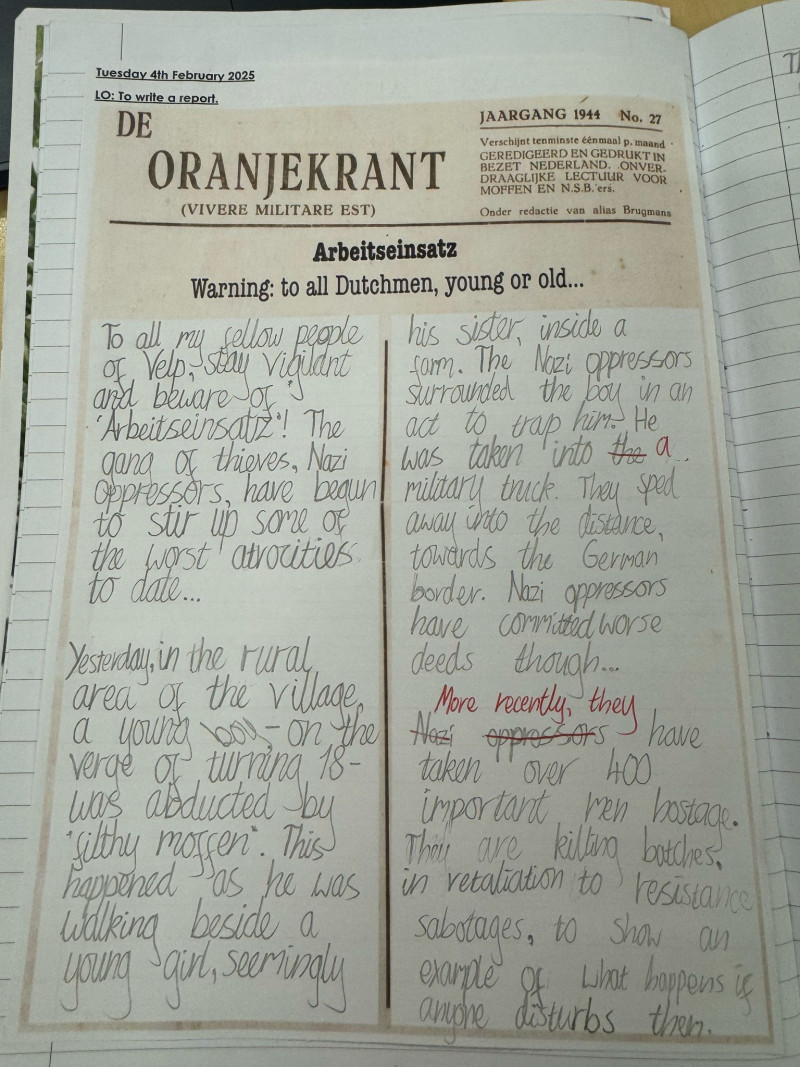 Tuesday 4th February 2025
LO: To write a report.
DE
ORANJEKRANT
(VIVERE MILITARE EST)
JAARGANG 1944 No. 27
Verschijnt tenminste éénmaal p. maand
GEREDIGEERD EN GEDRUKT IN
BEZET NEDERLAND. ONVER-
DRAAGLIJKE LECTUUR VOOR
MOFFEN EN N.S.B.'ers.
Onder redactie van alias Brugmans
Arbeitseinsatz
Warning: to all Dutchmen, young or old...
To all my fellow people
of Velp, stay vigilant
and beware of
'Arbeitseinsatz'! The
gang of thieves, Nazi
oppressors, have begun
to stir up some of
the worst atrocities
to date...
Yesterday, in the rural
area of the village,
a young boy - on the
verge of turning 18-
was abducted by
"filthy moffen". This
happened as he was
walking beside a
young girl, seemingly
his sister, inside a
farm. The Nazi oppressors
surrounded the boy in an
act to trap him. He
was taken into the a
military truck. They sped
away into the distance,
towards the German
border. Nazi oppressors
have committed worse
deeds though...
More recently, they
Nazi oppressors have
taken over 400
important men hostage.
They are killing batches,
in retaliation to resistance
sabotages, to show an
example of what happens if
anyone disturbs them.